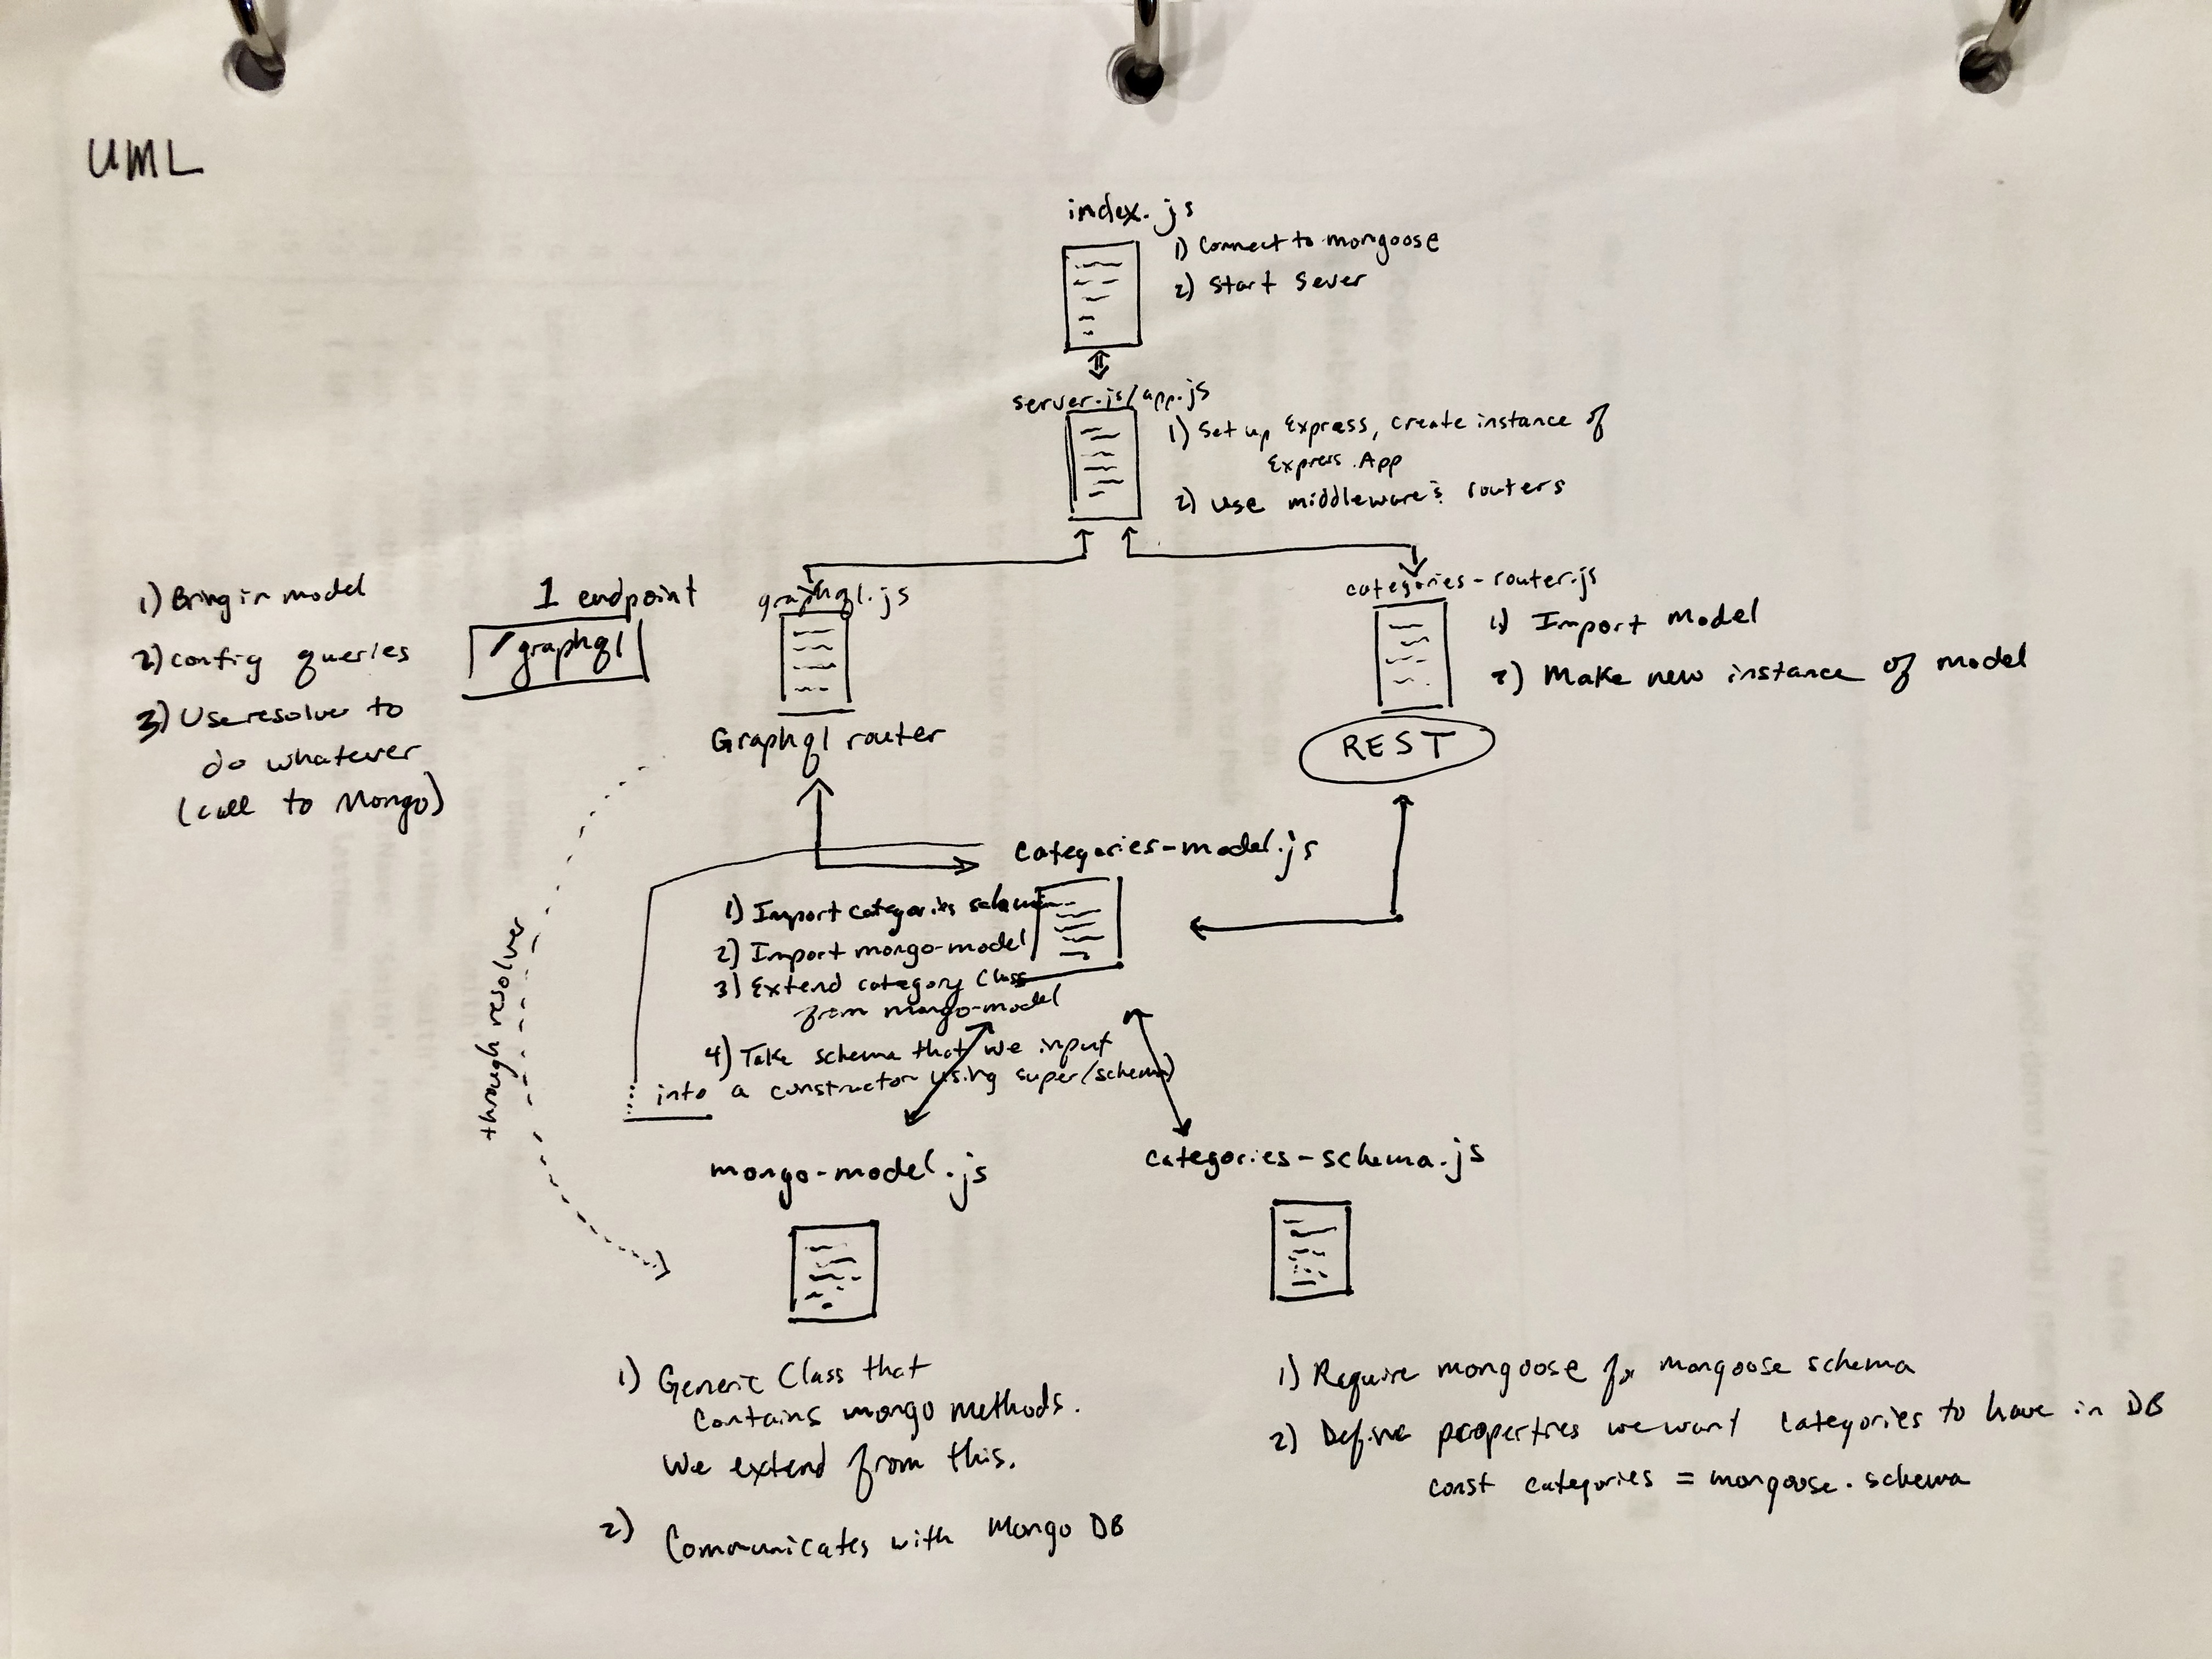 UML
index.js
1) Connect to mongoose
2) Start Sever
server.js/app.js
1) Set up Express, create instance of
Express.App
2) Use middleware & routers
1) Bring in model
2) config queries
3) Use resolver to
do whatever
(call to Mongo)
1 endpoint
/graphql
graphql.js
Graphql router
categories-router.js
1) Import Model
2) Make new instance of model
REST
through resolver
categories-model.js
1) Import categories schema
2) Import mongo-model
3) Extend category Class
from mongo-model
4) Take schema that we input
into a constructor using super(schema)
mongo-model.js
1) Generic Class that
contains mongo methods.
We extend from this.
2) Communicates with Mongo DB
categories-schema.js
1) Require mongoose for mongoose schema
2) Define properties we want categories to have in DB
const categories = mongoose.schema